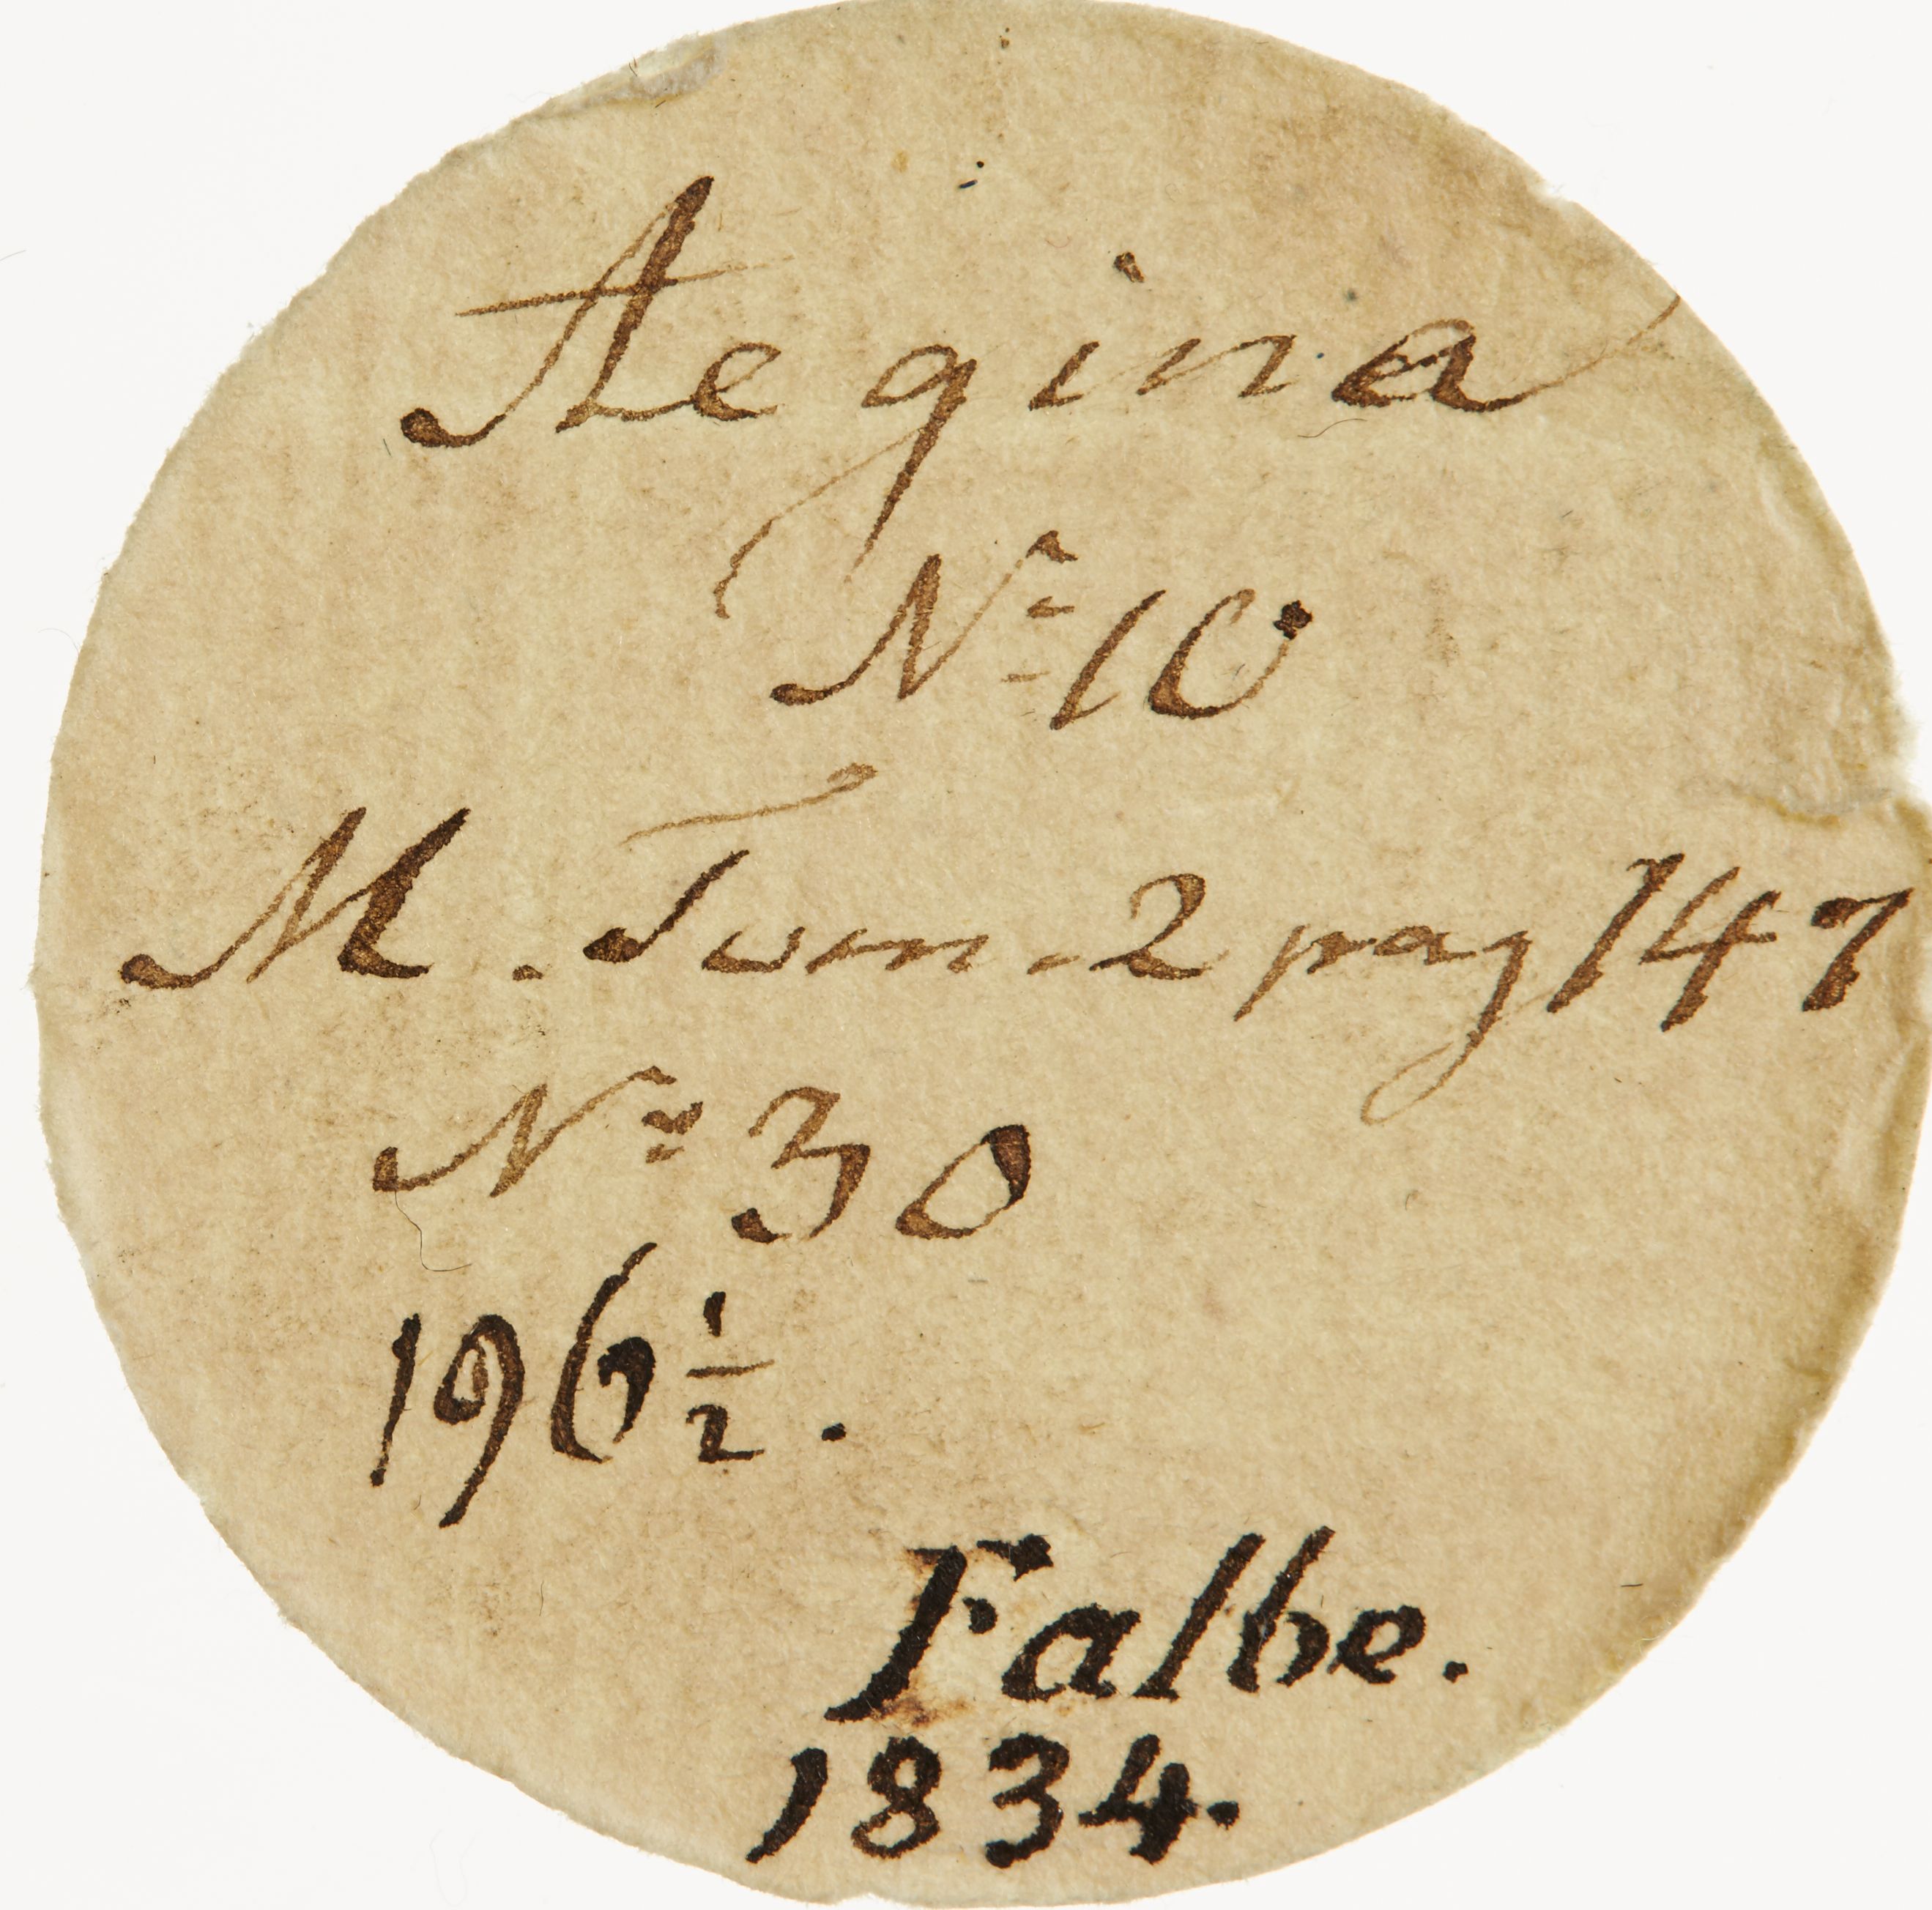 Aegina
Nº 10
M. Tom. 2 pag 147
Nº 30
196 1/2.
Falbe.
1834.